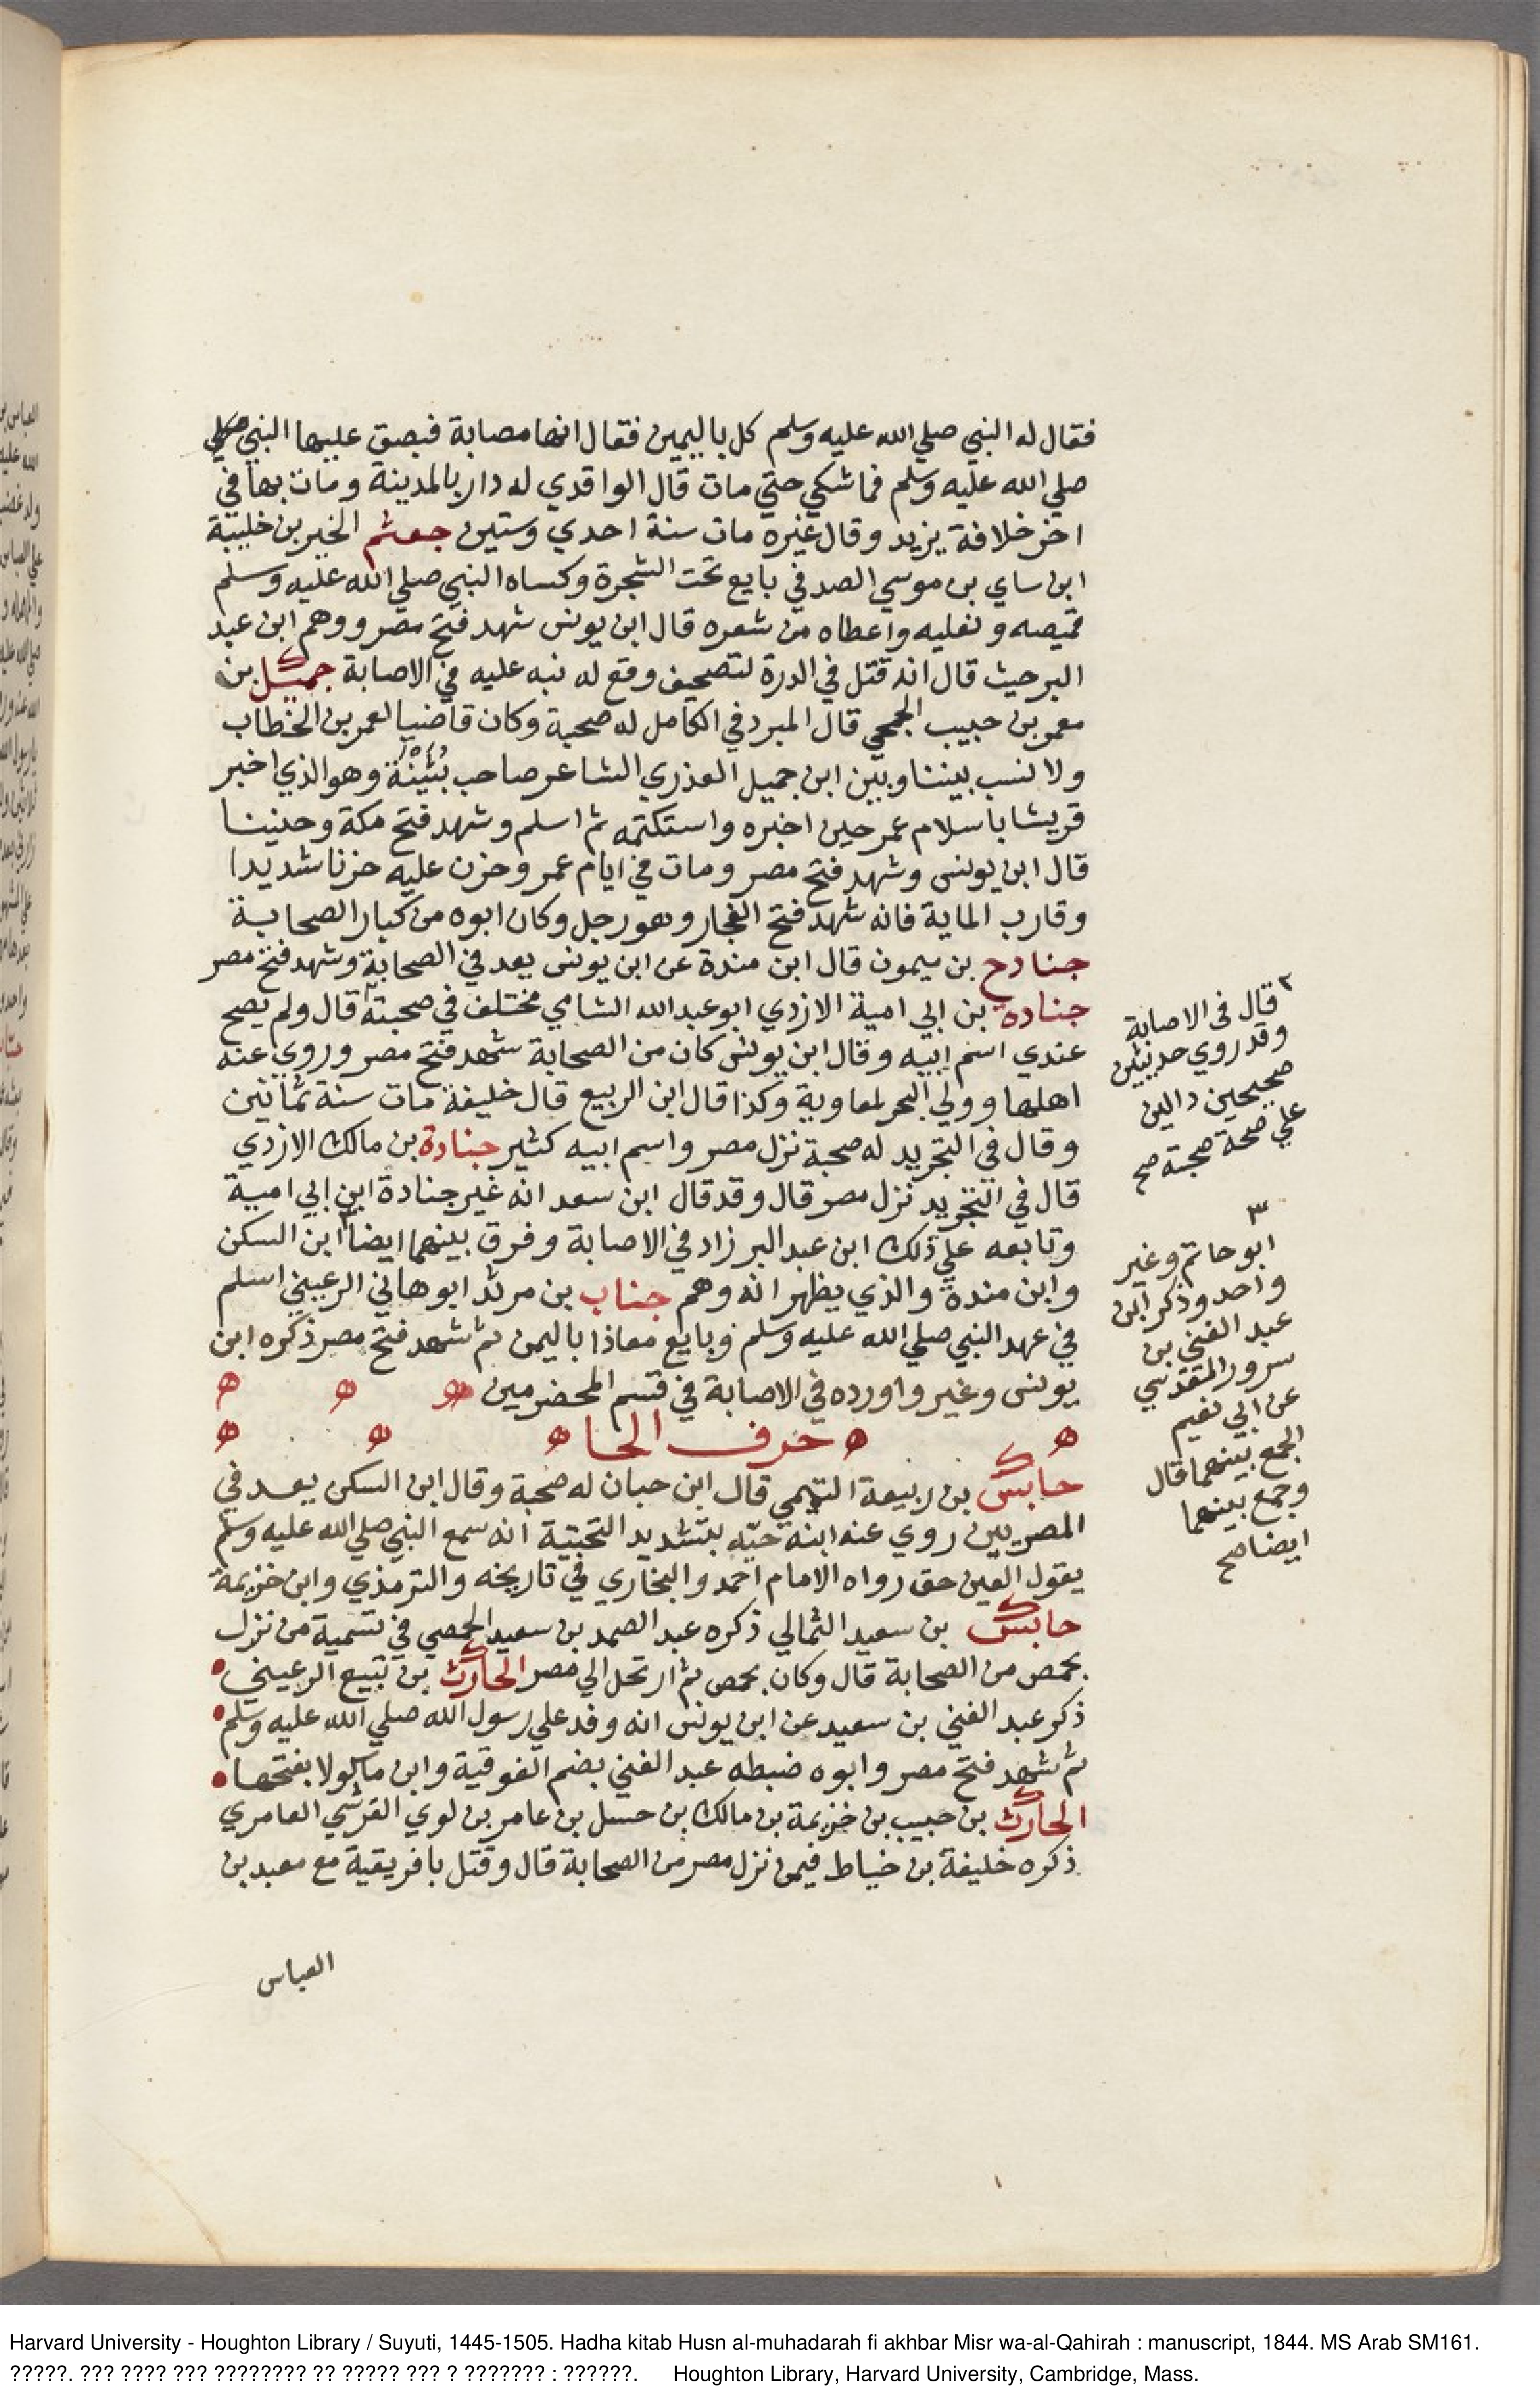 فقال له النبي صلي الله عليه وسلم كل باليمين فقال انها مصابة فبصق عليها النبي صلي
صلي الله عليه وسلم فما شكي حتي مات قال الواقدي له دار بالمدينة ومات بها في
اخر خلافة يزيد وقال غيره مات سنة احدي وستين جعشم الخير بن خليبة
ابن ساي بن موسي الصدفي بايع تحت الشجرة وكساه النبي صلي الله عليه وسلم
قميصه ونعليه واعطاه من شعره قال ابن يونس شهد فتح مصر ووهم ابن عبد
البر حيث قال انه قتل في الدرة لتصحيف وقع له نبه عليه في الاصابة جميل بن
معمر بن حبيب الجمحي قال المبرد في الكامل له صحبة وكان قاضيا لعمر بن الخطاب
ولا نسب بيننا وبين ابن جميل العذري الشاعر صاحب بُثَيْنَة وهو الذي اخبر
قريشا باسلام عمر حين اخبره واستكتمه ثم اسلم وشهد فتح مكة وحنينا
قال ابن يونس وشهد فتح مصر ومات في ايام عمر وحزن عليه حزنا شديدا
وقارب الماية فانه شهد فتح الفجار وهو رجل وكان ابوه من كبار الصحابة
جنادح بن ميمون قال ابن مندة عن ابن يونس يعد في الصحابة وشهد فتح مصر
جنادة بن ابي امية الازدي ابو عبد الله الشامي مختلف في صحبته ٢ قال ولم يصح
عندي اسم ابيه وقال ابن يونس كان من الصحابة شهد فتح مصر وروي عنه
اهلها وولي البحر لمعاوية وكذا قال ابن الربيع قال خليفة مات سنة ثمانين
وقال في التجريد له صحبة نزل مصر واسم ابيه كثير جنادة بن مالك الازدي
قال في التجريد نزل مصر قال وقد قال ابن سعد انه غير جنادة ابن ابي امية
وتابعه علي ذلك ابن عبد البر زاد في الاصابة وفرق بينهما ايضا ٣ ابن السكن
وابن مندة والذي يظهر انه وهم جناب بن مرثد ابو هاني الرعيني اسلم
في عهد النبي صلي الله عليه وسلم وبايع معاذا باليمن ثم شهد فتح مصر ذكره ابن
يونس وغير واورده في الاصابة في قسم المخضرمين ه ه ه
ه ه حرف الحا ه ه ه
حابس بن ربيعة التميمي قال ابن حبان له صحبة وقال ابن السكن يعد في
المصريين روي عنه ابنه حيّه بتشديد التحتية انه سمع النبي صلي الله عليه وسلم
يقول العين حق رواه الامام احمد والبخاري في تاريخه والترمذي وابن خزيمة
حابس بن سعيد الثمالي ذكره عبد الصمد بن سعيد الحمصي في تسمية من نزل
بحمص من الصحابة قال وكان بحمص ثم ارتحل الي مصر الحارث بن تبيع الرعيني
ذكر عبد الغني بن سعيد عن ابن يونس انه وفد علي رسول الله صلي الله عليه وسلم
ثم شهد فتح مصر وابوه ضبطه عبد الغني بضم الفوقية وابن ماكولا بفتحها
الحارث بن حبيب بن خزيمة بن مالك بن حسل بن عامر بن لوي القرشي العامري
ذكره خليفة بن خياط فيمن نزل مصر من الصحابة قال وقتل بافريقية مع معبد بن
العباس
٢
قال في الاصابة
وقد روي حديثين
صحيحين دالين
علي صحة صحبته صح
٣
ابو حاتم وغير
واحد وذكر ابن
عبد الغني بن
سرور المقدسي
عن ابي نعيم
الجمع بينهما قال
وجمع بينهما
ايضا صح
Harvard University - Houghton Library / Suyuti, 1445-1505. Hadha kitab Husn al-muhadarah fi akhbar Misr wa-al-Qahirah : manuscript, 1844. MS Arab SM161.
?????. ??? ???? ??? ???????? ?? ????? ??? ? ??????? : ??????. Houghton Library, Harvard University, Cambridge, Mass.